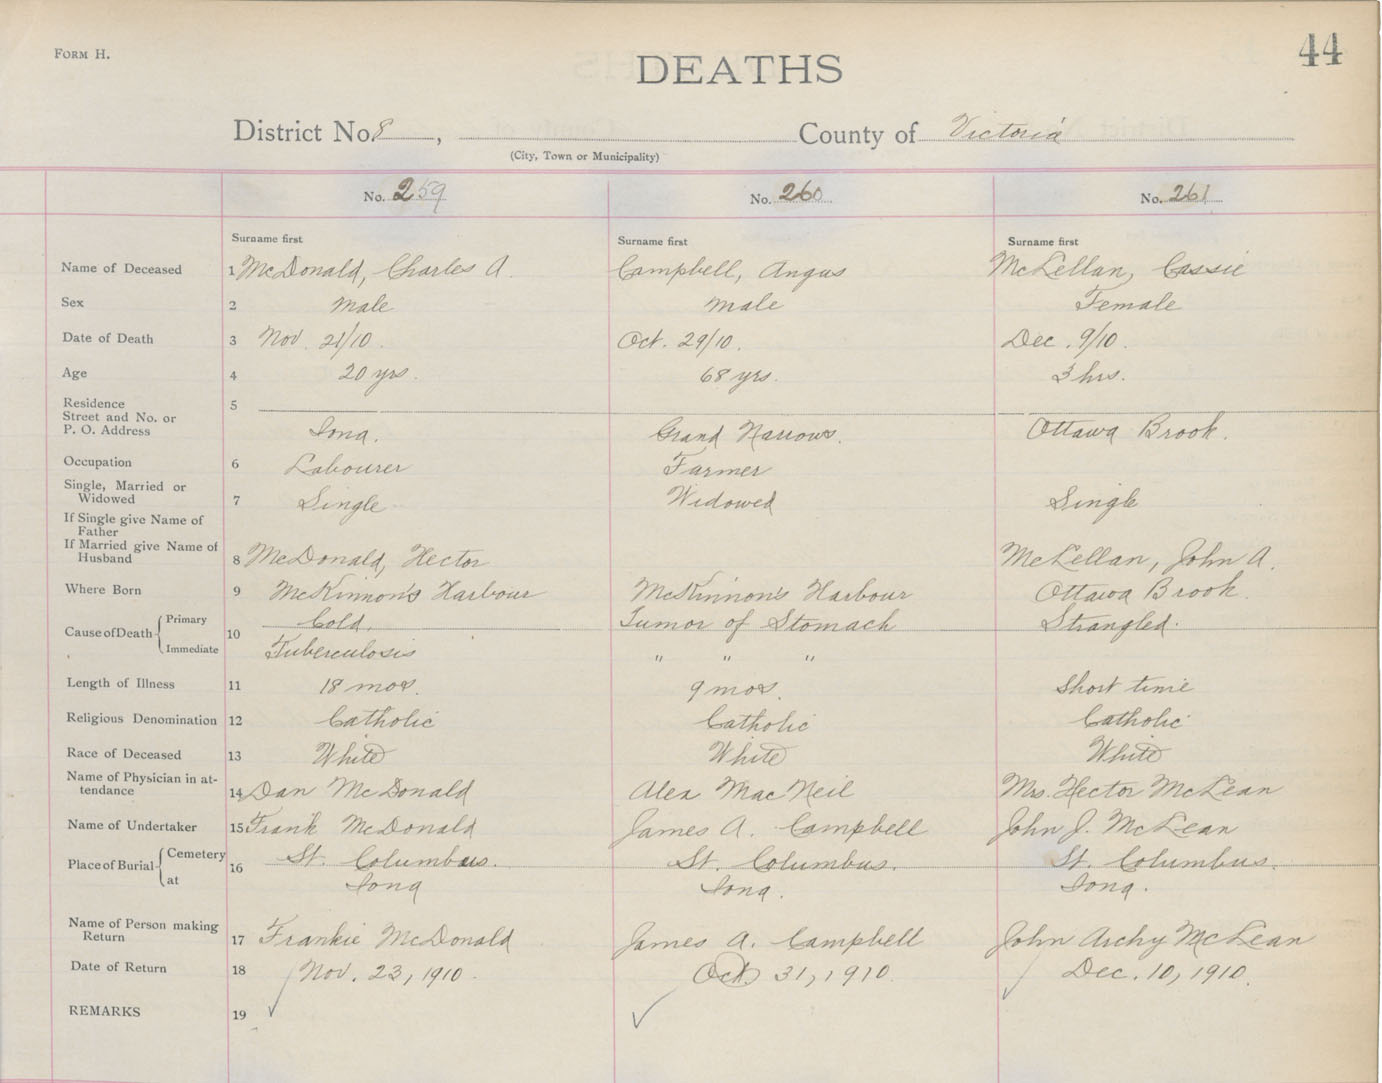 FORM H.
44
DEATHS
District No. 8, County of Victoria
(City, Town or Municipality)
No. 259 No. 260 No. 261
Surname first Surname first Surname first
Name of Deceased 1 McDonald, Charles A. Campbell, Angus McLellan, Cassie
Sex 2 Male Male Female
Date of Death 3 Nov. 21/10. Oct. 29/10. Dec. 9/10.
Age 4 20 yrs. 68 yrs. 3 hrs.
Residence 5
Street and No. or
P. O. Address Iona. Grand Narrows. Ottawa Brook.
Occupation 6 Labourer Farmer
Single, Married or
Widowed 7 Single Widowed Single
If Single give Name of
Father
If Married give Name of
Husband 8 McDonald, Hector McLellan, John A.
Where Born 9 McKinnon's Harbour McKinnon's Harbour Ottawa Brook.
Cause of Death 10 Primary Cold. Tumor of Stomach Strangled.
Immediate Tuberculosis " " "
Length of Illness 11 18 mos. 9 mos. Short time
Religious Denomination 12 Catholic Catholic Catholic
Race of Deceased 13 White White White
Name of Physician in at-
tendance 14 Dan McDonald Alex MacNeil Mrs. Hector McLean
Name of Undertaker 15 Frank McDonald James A. Campbell John J. McLean
Place of Burial 16 Cemetery St. Columbus. St. Columbus. St. Columbus.
at Iona Iona. Iona.
Name of Person making
Return 17 Frankie McDonald James A. Campbell John Archy McLean
Date of Return 18 Nov. 23, 1910. Oct. 31, 1910. Dec. 10, 1910.
REMARKS 19